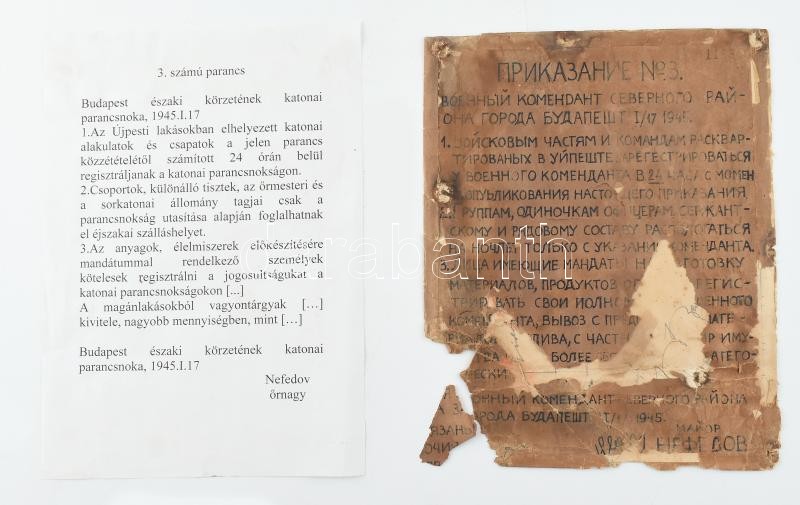 3. számú parancs
Budapest északi körzetének katonai
parancsnoka, 1945.I.17
1.Az Újpesti lakásokban elhelyezett katonai
alakulatok és csapatok a jelen parancs
közzétételétől számított 24 órán belül
regisztráljanak a katonai parancsnokságon.
2.Csoportok, különálló tisztek, az őrmesteri és
a sorkatonai állomány tagjai csak a
parancsnokság utasítása alapján foglalhatnak
el éjszakai szálláshelyet.
3.Az anyagok, élelmiszerek előkészítésére
mandátummal rendelkező személyek
kötelesek regisztrálni a jogosultságukat a
katonai parancsnokságokon [...]
A magánlakásokból vagyontárgyak […]
kivitele, nagyobb mennyiségben, mint […]
Budapest északi körzetének katonai
parancsnoka, 1945.I.17
Nefedov
őrnagy
ПРИКАЗАНИЕ №3.
ВОЕННЫЙ КОМЕНДАНТ СЕВЕРНОГО РАЙ-
ОНА ГОРОДА БУДАПЕШТ I/17 1945.
1. ВОЙСКОВЫМ ЧАСТЯМ И КОМАНДАМ РАСКВАР-
ТИРОВАНЫХ В УЙПЕШТЕ ЗАРЕГЕСТРИРОВАТЬСЯ
У ВОЕННОГО КОМЕНДАНТА В 24 ЧАСА С МОМЕН
ОПУБЛИКОВАНИЯ НАСТОЯЩЕГО ПРИКАЗАНИЯ
2. ГРУППАМ, ОДИНОЧКАМ ОФИЦЕРАМ, СЕРЖАНТ-
СКОМУ И РЯДОВОМУ СОСТАВУ РАСПОЛОГАТЬСЯ
НА НОЧЛЕГ ТОЛЬКО С УКАЗАНИЯ КОМЕНДАНТА.
3. ЛИЦА ИМЕЮЩИЕ МАНДАТЫ НА ГОТОВКУ
МАТЕРИАЛОВ, ПРОДУКТОВ РЕГИС-
ТРИРОВАТЬ СВОИ ЕННОГО
КОМЕНДАНТА, ВЫВОЗ С
ЛИВА, С ИМУ-
БОЛЕЕ АТЕГО-
ЧЕСКИ
ВОЕННЫЙ КОМЕНДАНТ СЕВЕРНОГО РАЙОНА
ГОРОДА БУДАПЕШТ 1945.
МАЙОР
НЕФЕДОВ
darabanth